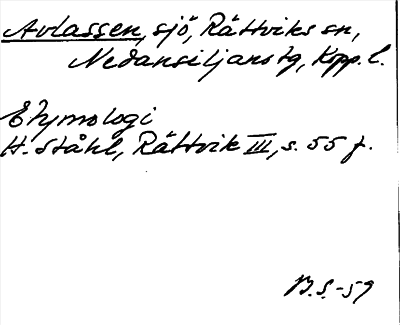 Avlassen, sjö, Rättviks sn,
Nedansiljans tg, Kopp. l.
Etymologi
H. Ståhl, Rättvik III, s. 55 f.
B.S.-59